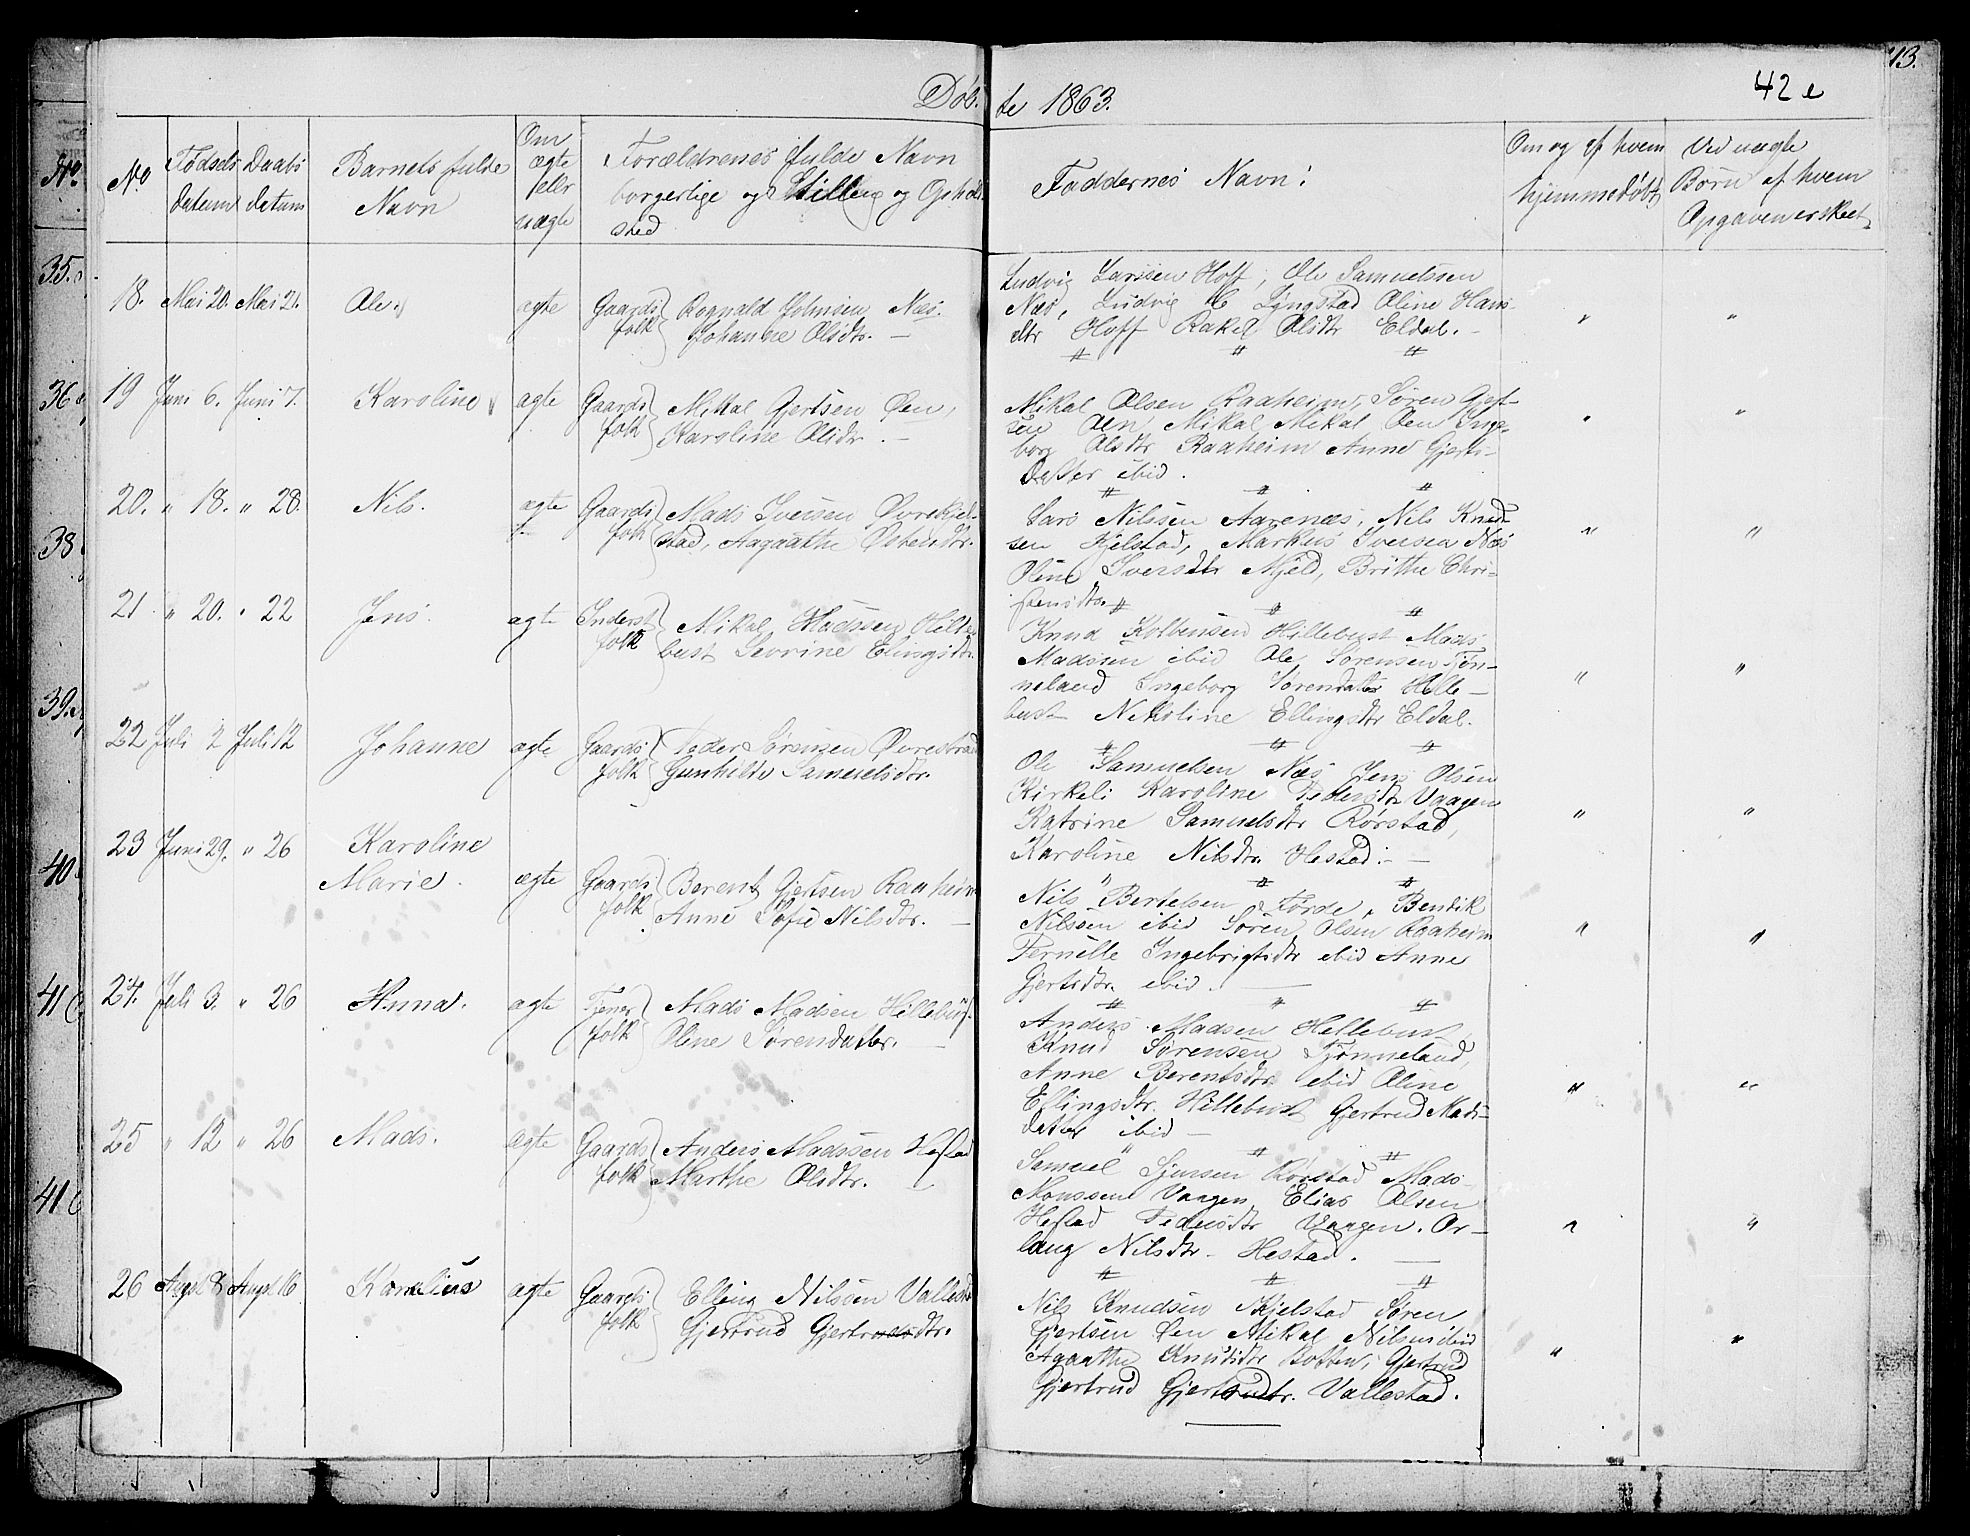 13.
42 e
Døbte 1863.
No
No
Fødsels datum
Daabs datum
Barnets fulde Navn
Om ægte eller uægte
Forældrenes fulde Navn
borgerlige og Stilling og Opholds
sted
Faddernes Navn:
Om og af hvem
hjemmedøbt
Ved uægte
Børn af hvem
Opgaven er skeet
35.
18. Mai 20. Mai 21. Ole. ægte Gaards folk Rognald Johnsen Næs.
Johanne Olsdtr. —
Ludvig Larssen Hoff, Ole Samuelssen
Næs, Ludvig C Lyngstad Oline Hans
dtr Hoff Rakel Olsdtr Eldal. —
36
19 Juni 6. Juni 7. Karoline ægte Gaards folk Mikal Gjertsen Øen,
Karoline Olsdtr. —
Mikal Olsen Raaheim, Søren Gjert-
sen Øen Mikal Mikal Øen Inge-
borg Olsdtr Raaheim Anne Gjerts-
Datter ibid.
20. " 18. " 28. Nils. ægte Gaards folk Mads Iversen Øvrekjel-
stad, Aagaathe Østensdtr.
38
Lars Nilssen Aarenæs, Nils Knud-
sen Kjelstad, Markus Iversen Næs
Oline Iversdtr Mjeld, Brithe Chri-
stensdtr.
21 " 20. " 22 Jens. ægte Inderst folk Mikal Madssen Hille
bust Sevrine Elingsdtr.
Knud Kolbensen Hillebust Mads
Madssen ibid Ole Sørensen Tjøn-
neland Ingeborg Sørendatter Hille-
bust Nikoline Ellingsdtr Eldal.
39.
22 Juli 2 Juli 12 Johanne ægte Gaards folk Peder Sørensen Øvrestrand
Gunhilde Samuelsdtr.
Ole Samuelsen Næs Jens Olsen
Kirkeli Karoline Pedersdtr Vaagen
Katrine Samuelsdtr Rørstad,
Karoline Nilsdtr. Hestad. —
40
23 Juni 29. " 26 Karoline
Marie. ægte Gaards folk Berent Gjertsen Raaheim
Anne Sofie Nilsdtr. —
Nils Bertelsen Førde, Bendik
Nilssen ibid Søren Olsen Raaheim
Pernille Ingebrigtsdtr ibid Anne
Gjertsdtr. ibid. —
41
24. Juli 3. " 26 Anna. ægte Tjener folk Mads Madsen Hillebust
Oline Sørendatter. —
Anders Madsen Hillebust,
Knud Sørensen Tjønneland,
Anne Berentsdtr. ibid Oline
Ellingsdtr. Hillebust Gjertrud Mads-
datter ibid —
25 " 12 " 26 Mads. ægte Gaards folk Anders Madssen Hestad
Marthe Olsdtr.
41
Samuel Sjursen Rørstad Mads
Monssen Vaagen, Elias Olsen
Hestad Pedersdtr Vaagen. Or-
laug Nilsdtr. Hestad. —
26 Augst 8 Augst 16 Kornelius ægte Gaards folk Elling Nilsen Vallestad
Gjertrud Gjertrudsdtr.
Nils Knudsen Kjelstad Søren
Gjertsen Øen Mikal Nilsen ibid
Agaathe Knudsdtr Botten, Gjertrud
Gjertrud Gjertsdtr. Vallestad.